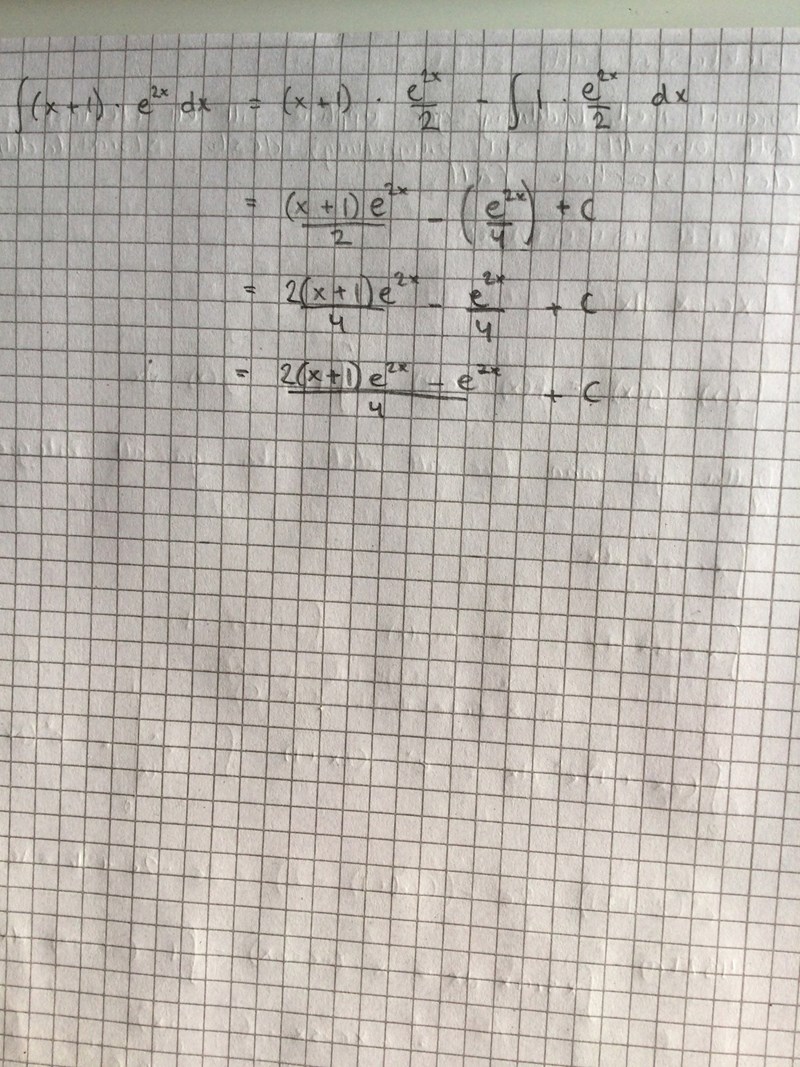 ∫(x+1) · e^{2x} dx = (x+1) · e^{2x}/2 - ∫ 1 · e^{2x}/2 dx
= (x+1)e^{2x}/2 - (e^{2x}/4) + C
= 2(x+1)e^{2x}/4 - e^{2x}/4 + C
= (2(x+1)e^{2x} - e^{2x})/4 + C